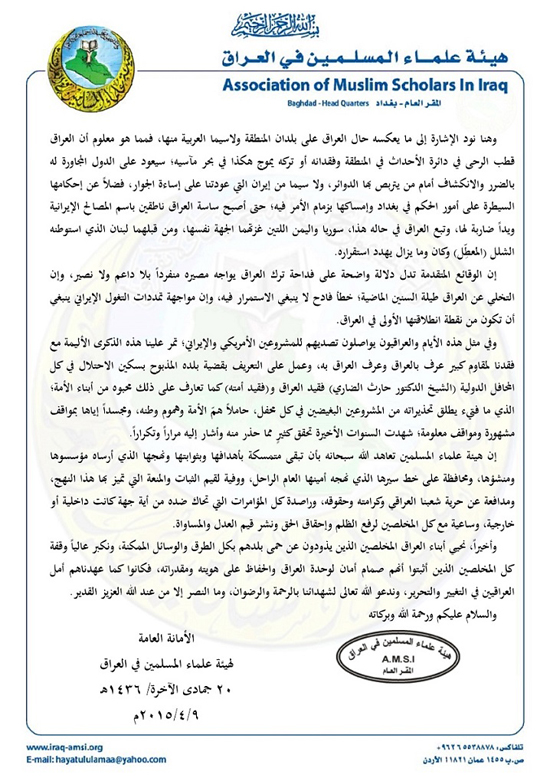 بسم الله الرحمن الرحيم
هيئة علماء المسلمين في العراق
Association of Muslim Scholars In Iraq
Baghdad - Head Quarters المقر العام - بغداد
وهنا نود الإشارة إلى ما يعكسه حال العراق على بلدان المنطقة ولاسيما العربية منها، فمما هو معلوم أن العراق
قطب الرحى في دائرة الأحداث في المنطقة وفقدانه أو تركه يموج هكذا في بحر مآسيه؛ سيعود على الدول المجاورة له
بالضرر والانكشاف أمام من يتربص بها الدوائر، ولا سيما من إيران التي عودتنا على إساءة الجوار، فضلاً عن إحكامها
السيطرة على أمور الحكم في بغداد وإمساكها بزمام الأمر فيه؛ حتى أصبح ساسة العراق ناطقين باسم المصالح الإيرانية
ويداً ضاربة لها، وتبع العراق في حاله هذا، سوريا واليمن اللتين غزتهما الجهة نفسها، ومن قبلهما لبنان الذي استوطنه
الشلل (المعطِّل) وكان وما يزال يهدد استقراره.
إن الوقائع المتقدمة تدل دلالة واضحة على فداحة ترك العراق يواجه مصيره منفرداً بلا داعم ولا نصير، وإن
التخلي عن العراق طيلة السنين الماضية؛ خطأ فادح لا ينبغي الاستمرار فيه، وإن مواجهة تمددات التغول الإيراني ينبغي
أن تكون من نقطة انطلاقتها الأولى في العراق.
وفي مثل هذه الأيام والعراقيون يواصلون تصديهم للمشروعين الأمريكي والإيراني؛ تمر علينا هذه الذكرى الأليمة مع
فقدنا لمقاوم كبير عرف بالعراق وعرف العراق به، وعمل على التعريف بقضية بلده المذبوح بسكين الاحتلال في كل
المحافل الدولية (الشيخ الدكتور حارث الضاري) فقيد العراق و(فقيد أمته) كما تعارف على ذلك محبوه من أبناء الأمة؛
الذي ما فتيء يطلق تحذيراته من المشروعين البغيضين في كل محفل، حاملاً همّ الأمة وهموم وطنه، ومجسداً إياها بمواقف
مشهورة ومواقف معلومة؛ شهدت السنوات الأخيرة تحقق كثيرٍ مما حذر منه وأشار إليه مراراً وتكراراً.
إن هيئة علماء المسلمين تعاهد الله سبحانه بأن تبقى متمسكة بأهدافها وبثوابتها ونهجها الذي أرساه مؤسسوها
ومنشؤها، ومحافظة على خط سيرها الذي نهجه أمينها العام الراحل، ووفية لقيم الثبات والمنعة التي تميز بها هذا النهج،
ومدافعة عن حرية شعبنا العراقي وكرامته وحقوقه، وراصدة كل المؤامرات التي تحاك ضده من أية جهة كانت داخلية أو
خارجية، وساعية مع كل المخلصين لرفع الظلم وإحقاق الحق ونشر قيم العدل والمساواة.
وأخيراً، نحيي أبناء العراق المخلصين الذين يذودون عن حمى بلدهم بكل الطرق والوسائل الممكنة، ونكبر عالياً وقفة
كل المخلصين الذين أثبتوا أنهم صمام أمان لوحدة العراق والحفاظ على هويته ومقدراته، فكانوا كما عهدناهم أمل
العراقيين في التغيير والتحرير، وندعو الله تعالى لشهدائنا بالرحمة والرضوان، وما النصر إلا من عند الله العزيز القدير.
والسلام عليكم ورحمة الله وبركاته
الأمانة العامة
هيئة علماء المسلمين في العراق
٢٠ جمادى الآخرة/ ١٤٣٦هـ
٢٠١٥/٤/٩م
هيئة علماء المسلمين في العراق
A.M.S.I
المقر العام
www.iraq-amsi.org
E-mail: hayatululamaa@yahoo.com
تلفاكس: ٠٠٩٦٢٦٥٥٣٨٨٧٨
ص.ب ١٤٥٥ عمان ١١٨٢١ الأردن